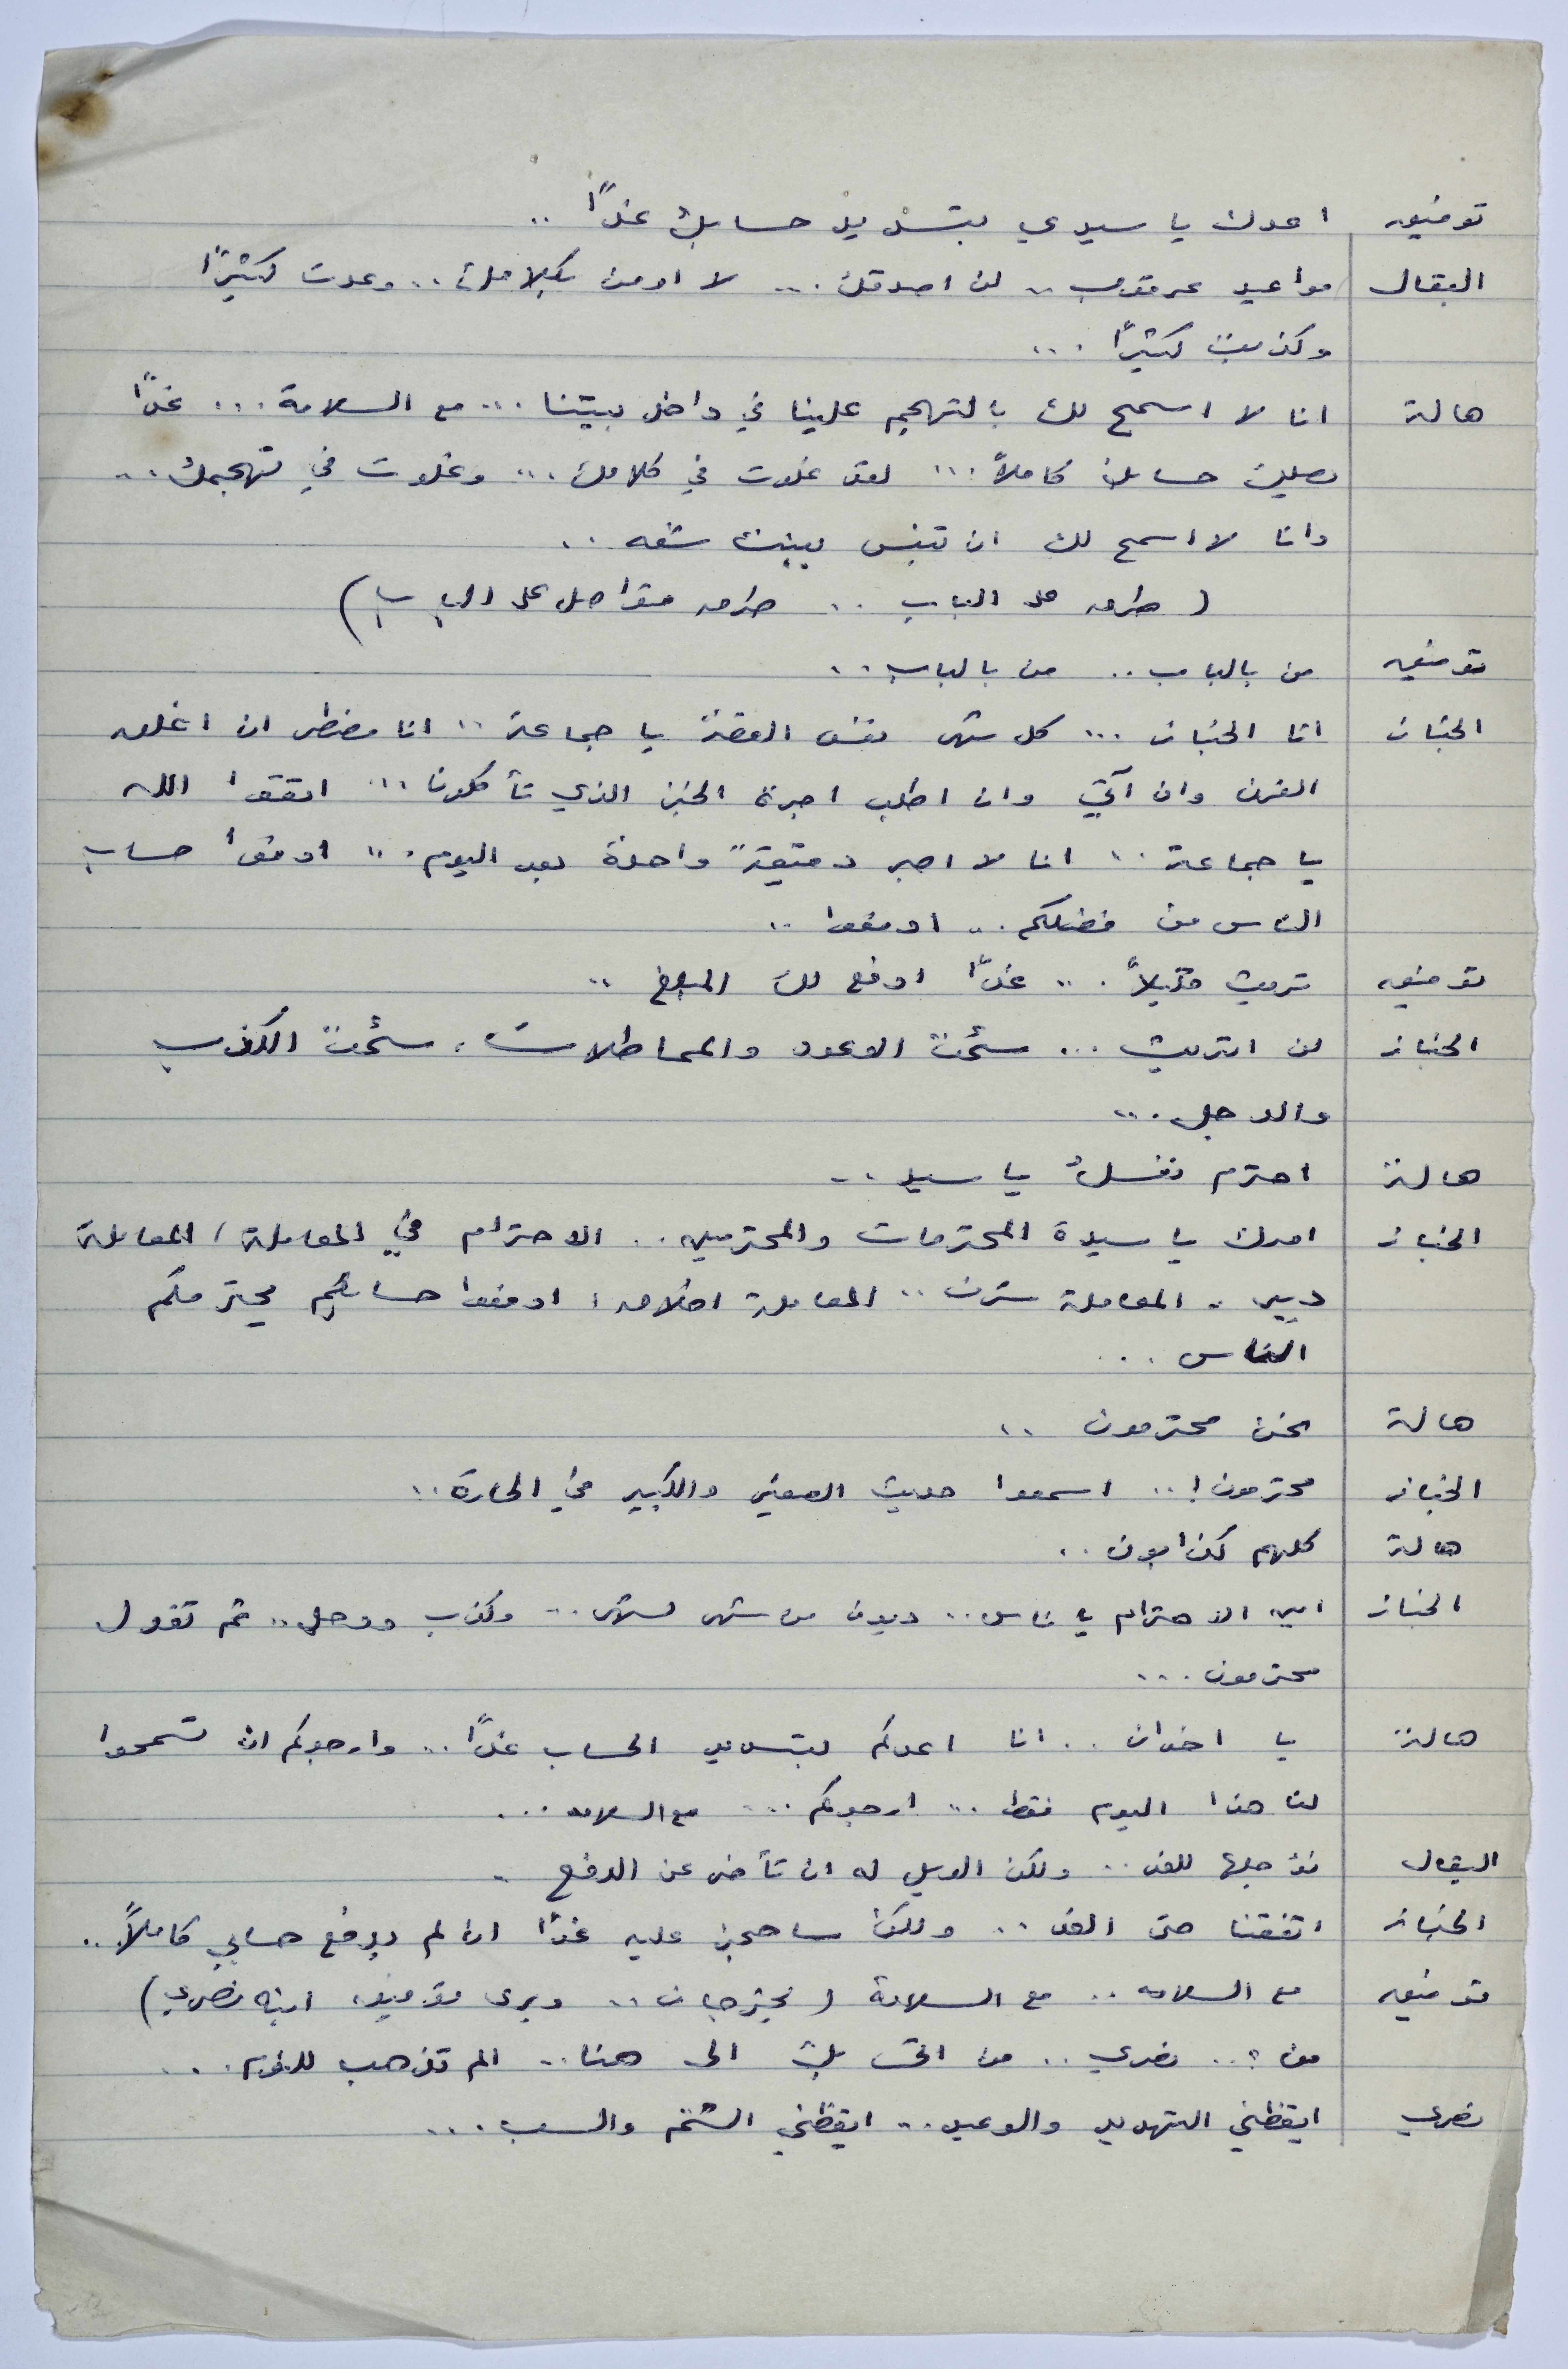 توفيق اعدك يا سيدي بتسديد حسابك غداً ..
البقال مواعيد عرقوب .. لن اصدقك ... لا اومن بكلامك .. وعدت كثيراً
وكذبت كثيراً ...
هالة انا لا اسمح لك بالتهجم علينا في داخل بيتنا ... مع السلامة ... غداً
يصلك حسابك كاملاً ... لقد غلوت في كلامك ... وغلوت في تهجمك ..
وانا لا اسمح لك ان تنبس ببنت شفه ..
( طرق على الباب .. طرق متواصل على الباب )
توفيق من بالباب .. من بالباب ..
الخباز انا الخباز ... كل شهر نفس القصة يا جماعة .. انا مضطر ان اغلق
الفرن وان آتي وان اطلب اجرة الخبز الذي تأكلون ... اتقوا الله
يا جماعة .. انا لا اصبر دقيقة واحدة بعد اليوم ... ادفعوا حساب
الناس من فضلكم .. ادفعوا ..
توفيق تريث قليلاً ... غداً ادفع لك المبلغ ..
الخباز لن اتريث ... سئمت الوعود والمماطلات ، سئمت الكذب
والدجل ...
هالة احترم نفسك يا سيد ..
الخباز امرك يا سيدة المحترمات والمحترمين .. الاحترام في المعاملة ، المعاملة
دين .. المعاملة شرف .. المعاملة اخلاق ، ادفعوا حسابكم يحترمكم
الناس ...
هالة نحن محترمون ..
الخباز محترمون ! .. اسمعوا حديث الصغير والكبير في الحارة ..
هالة كلهم كذابون ..
الخباز اين الاحترام يا ناس .. ديون من شهر لشهر .. وكذب ودجل .. ثم تقول
محترمون ...
هالة يا اخوان .. انا اعدكم بتسديد الحساب غداً .. وارجوكم ان تسمحوا
لنا هذا اليوم فقط ... ارجوكم ... مع السلامه ...
البقال نؤجلها للغد .. ولكن الويل له ان تأخر عن الدفع .
الخباز اتفقنا حتى الغد .. ولكن ساحجز عليه غداً ان لم يدفع حسابي كاملاً ..
توفيق مع السلامه .. مع السلامة ( يخرجان .. ويرى توفيق ابنه نصري )
من ؟ .. نصري .. من اتى بك الى هنا .. الم تذهب للنوم ...
نصري ايقظني التهديد والوعيد ... ايقظني الشتم والسب ...